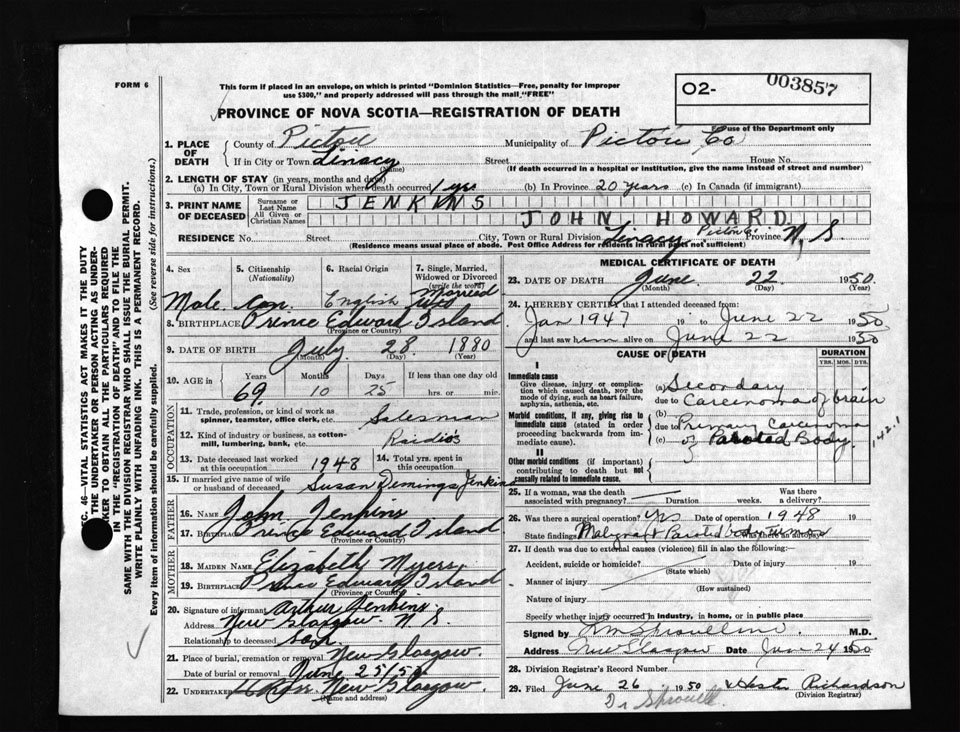 FORM 6
This form if placed in an envelope, on which is printed "Dominion Statistics—Free, penalty for improper
use $300," and properly addressed will pass through the mail "FREE"
O2- 003857
For use of the Department only
PROVINCE OF NOVA SCOTIA—REGISTRATION OF DEATH
1. PLACE OF DEATH
County of Pictou Municipality of Pictou Co
If in City or Town Linacy (Name) Street House No.
(If death occurred in a hospital or institution, give the name instead of street and number)
2. LENGTH OF STAY (in years, months and days)
(a) In City, Town or Rural Division where death occurred 1 yes (b) In Province 20 years (c) In Canada (if immigrant)
3. PRINT NAME OF DECEASED
Surname or Last Name JENKINS
All Given or Christian Names JOHN HOWARD
RESIDENCE No. Street City, Town or Rural Division Linacy Pictou Co. Province N, S.
(Residence means usual place of abode. Post Office Address for residents in rural parts not sufficient)
4. Sex
Male
5. Citizenship (Nationality)
Can.
6. Racial Origin
English
7. Single, Married, Widowed or Divorced (write the word)
Married
8. BIRTHPLACE Prince Edward Island
(Province or Country)
9. DATE OF BIRTH July 28 1880
(Month) (Day) (Year)
10. AGE in Years Months Days If less than one day old
69 10 25 hrs. or min.
OCCUPATION
11. Trade, profession, or kind of work as spinner, teamster, office clerk, etc. Salesman
12. Kind of industry or business, as cotton-mill, lumbering, bank, etc. Raidios
13. Date deceased last worked at this occupation 1948
14. Total yrs. spent in this occupation
15. If married give name of wife or husband of deceased Susan Demings Jenkins
FATHER
16. Name John Jenkins
17. Birthplace Prince Edward Island
(Province or Country)
MOTHER
18. MAIDEN NAME Elizabeth Myers
19. BIRTHPLACE Prince Edward Island
(Province or Country)
20. Signature of informant Arthur Jenkins
Address New Glasgow N S.
Relationship to deceased son.
21. Place of burial, cremation or removal New Glasgow.
Date of burial or removal June 25/50
22. UNDERTAKER New Glasgow.
(Name and address)
MEDICAL CERTIFICATE OF DEATH
23. DATE OF DEATH June 22 1950
(Month) (Day) (Year)
24. I HEREBY CERTIFY that I attended deceased from:
Jan 1947 19 to June 22 1950
and last saw him alive on June 22 1950
CAUSE OF DEATH
DURATION
YRS. MOS. DYS.
I
Immediate cause
Give disease, injury or complication which caused death, NOT the mode of dying, such as heart failure, asphyxia, asthenia, etc.
(a) Secondary
due to Carcinoma of brain
Morbid conditions, if any, giving rise to immediate cause (stated in order proceeding backwards from immediate cause).
(b)
due to Primary Carcinoma
(c) of Parotid Body
142.1
II
Other morbid conditions (if important) contributing to death but not causally related to immediate cause.
25. If a woman, was the death associated with pregnancy? Duration weeks. Was there a delivery?
26. Was there a surgical operation? yes Date of operation 1948 19
State findings Malignant Parotid body tumor Was there an autopsy?
27. If death was due to external causes (violence) fill in also the following:—
Accident, suicide or homicide? Date of injury 19
(State which)
Manner of injury
(How sustained)
Nature of injury
Specify whether injury occurred in industry, in home, or in public place
Signed by M.D.
Address New Glasgow Date Jun 24 1950
28. Division Registrar's Record Number
29. Filed June 26 1950 Richardson
(Division Registrar)
Dr Sproull
SEC. 46—VITAL STATISTICS ACT MAKES IT THE DUTY
OF THE UNDERTAKER OR PERSON ACTING AS UNDERTAKER TO OBTAIN ALL THE PARTICULARS REQUIRED
IN THE "REGISTRATION OF DEATH" AND TO FILE THE
SAME WITH THE DIVISION REGISTRAR WHO SHALL ISSUE THE BURIAL PERMIT.
WRITE PLAINLY WITH UNFADING INK. THIS IS A PERMANENT RECORD.
Every item of information should be carefully supplied. (See reverse side for instructions.)